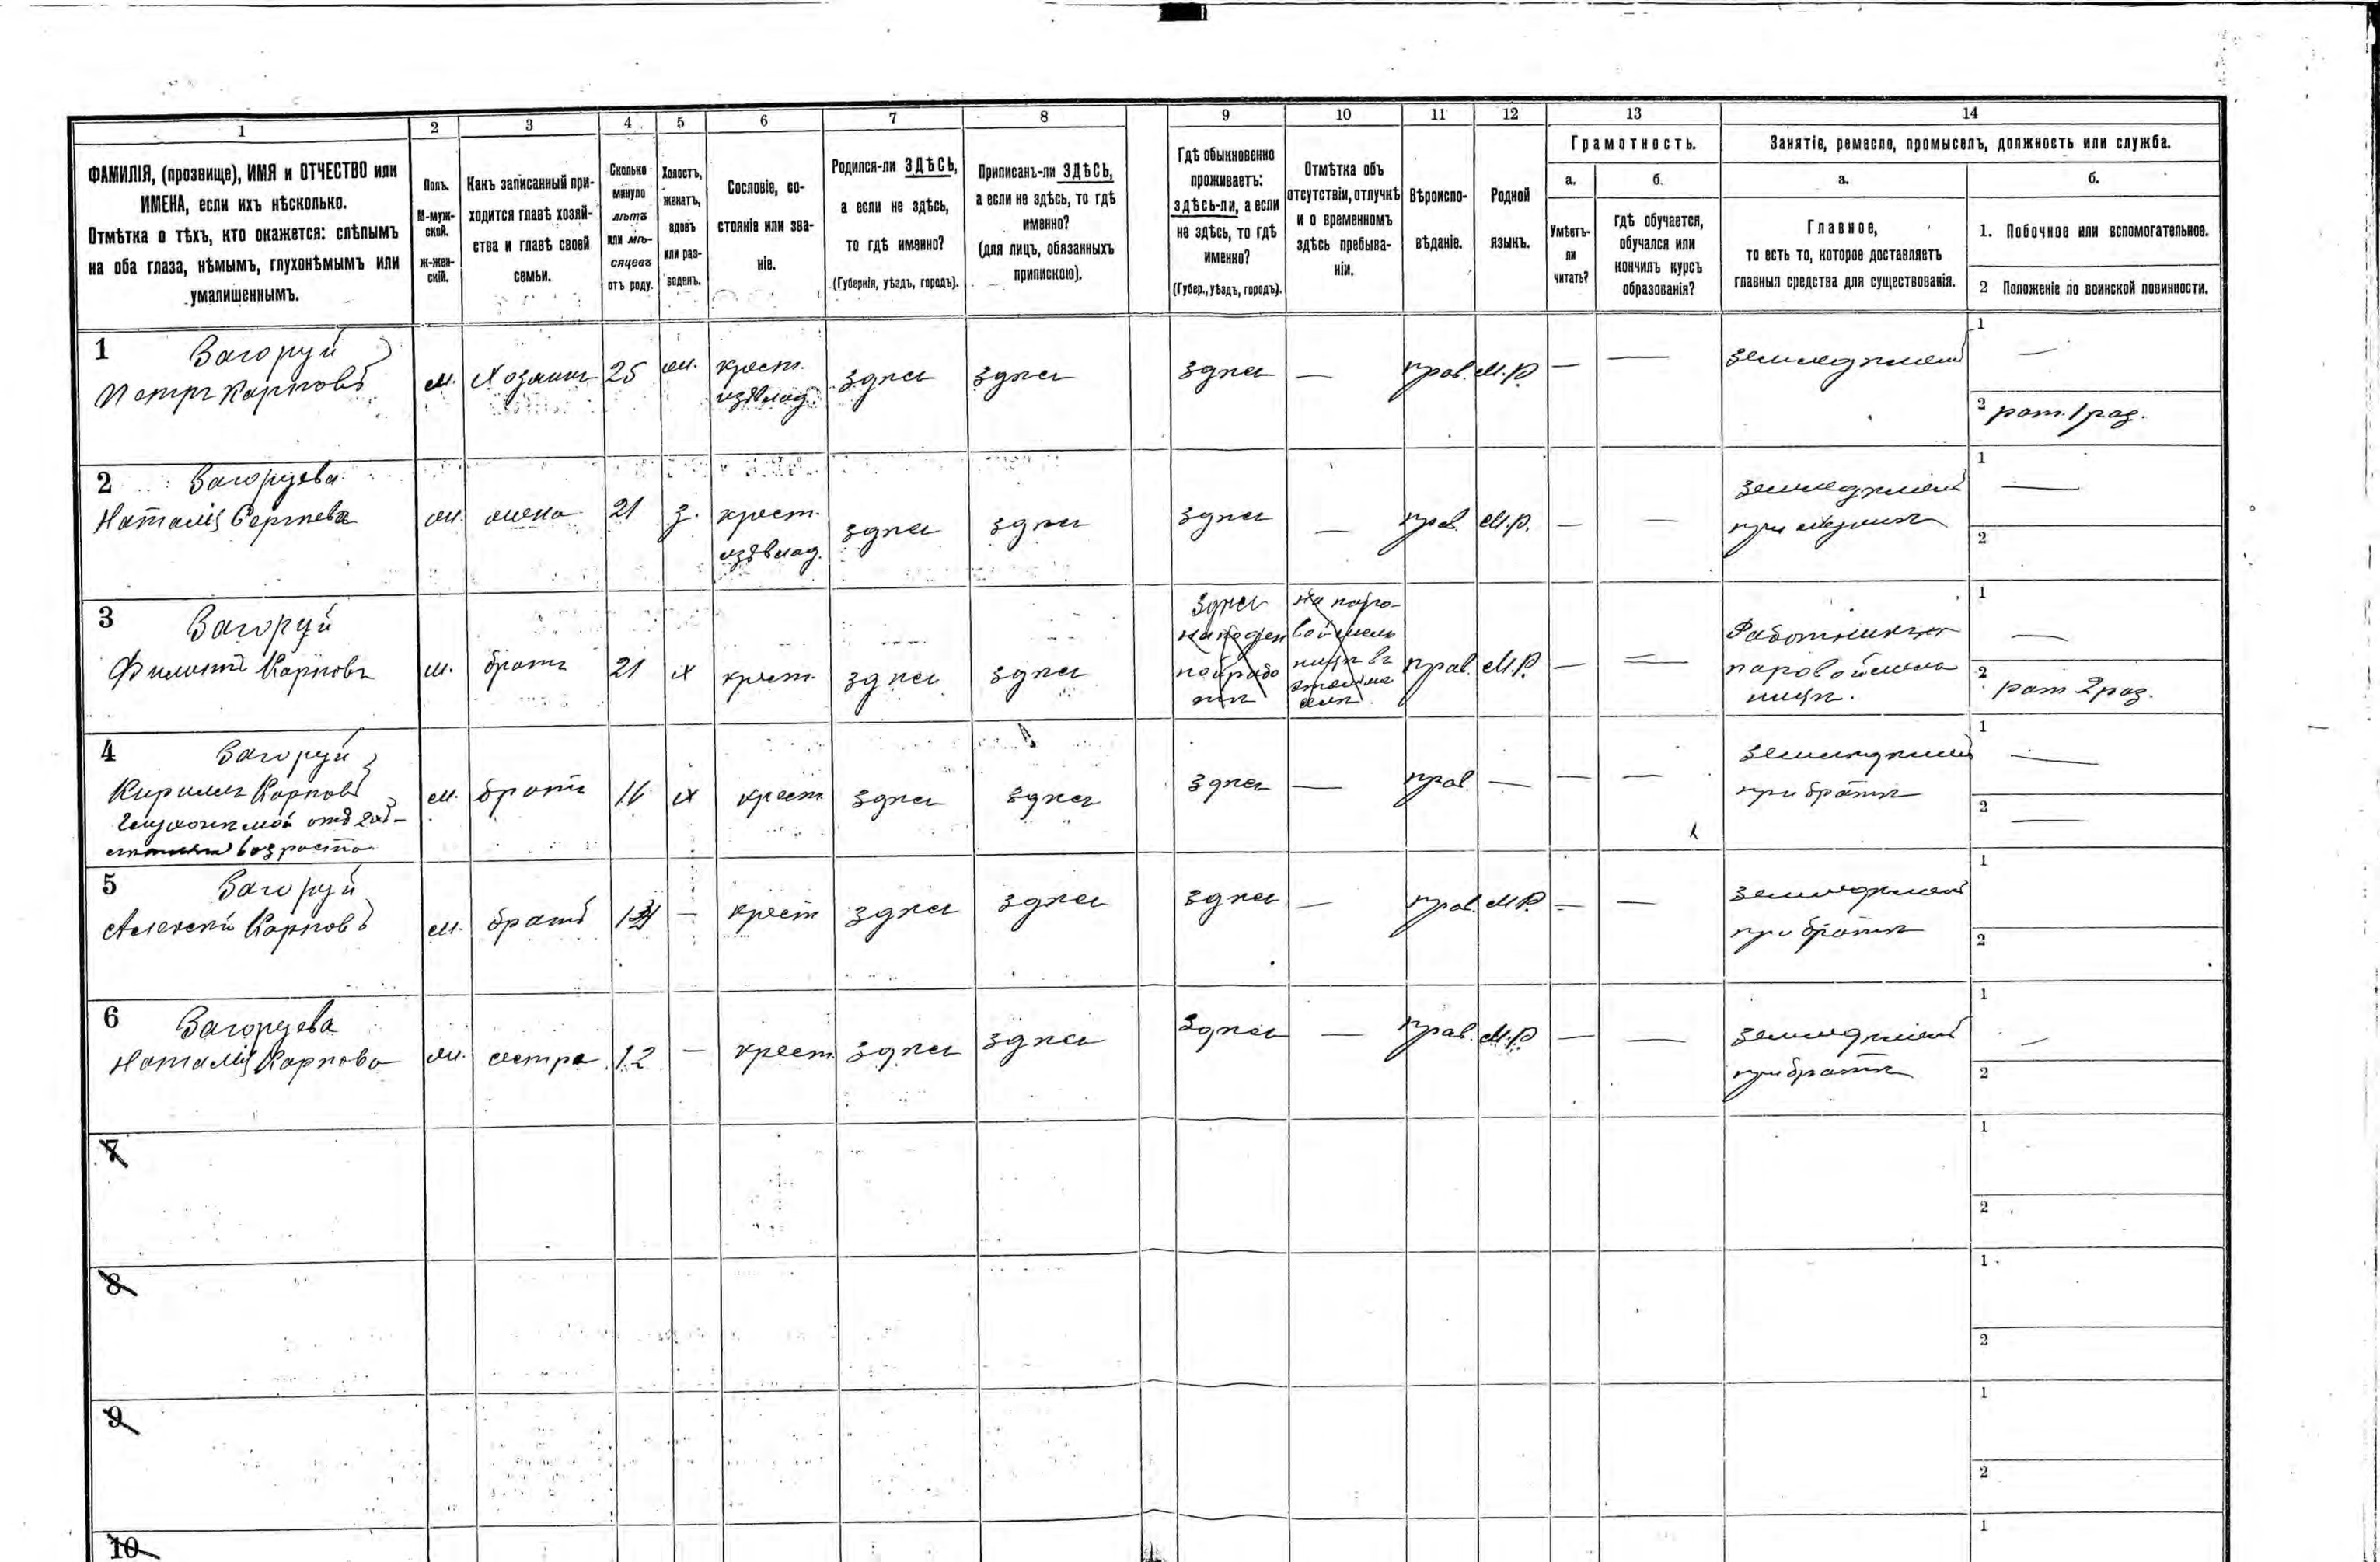 1 2 3 4 5 6 7 8 9 10 11 12 13 14
ФАМИЛІЯ, (прозвище), ИМЯ и ОТЧЕСТВО или
ИМЕНА, если ихъ нѣсколько.
Отмѣтка о тѣхъ, кто окажется: слѣпымъ
на оба глаза, нѣмымъ, глухонѣмымъ или
умалишеннымъ.
Полъ.
М-муж-
ской.
ж-жен-
скій.
Какъ записанный при-
ходится главѣ хозяй-
ства и главѣ своей
семьи.
Сколько
минуло
лѣтъ
или мѣ-
сяцевъ
отъ роду.
Холостъ,
женатъ,
вдовъ
или раз-
веденъ.
Сословіе, со-
стояніе или зва-
ніе.
Родился-ли ЗДѢСЬ,
а если не здѣсь,
то гдѣ именно?
(Губернія, уѣздъ, городъ).
Приписанъ-ли ЗДѢСЬ,
а если не здѣсь, то гдѣ
именно?
(для лицъ, обязанныхъ
припискою).
Гдѣ обыкновенно
проживаетъ:
здѣсь-ли, а если
не здѣсь, то гдѣ
именно?
(Губер., уѣздъ, городъ).
Отмѣтка объ
отсутствіи, отлучкѣ
и о временномъ
здѣсь пребыва-
ніи.
Вѣроиспо-
вѣданіе.
Родной
языкъ.
Грамотность.
а.
Умѣетъ-
ли
читать?
б.
гдѣ обучается,
обучался или
кончилъ курсъ
образованія?
Занятіе, ремесло, промыселъ, должность или служба.
а.
Главное,
то есть то, которое доставляетъ
главныя средства для существованія.
б.
1. Побочное или вспомогательное.
2 Положеніе по воинской повинности.
1 Загоруй
Петръ Карповъ
м. Хозяинъ 25 ж. крест.
изъ влад. здѣсь здѣсь здѣсь — прав. М.Р. — — земледѣліемъ
1 —
2 рат. 1 раз.
2 Загоруева
Наталія Сергѣева
ж. жена 21 з. крест.
изъ влад. здѣсь здѣсь здѣсь — прав. М.Р. — — земледѣліемъ
при мужѣ
1 —
2
3 Загоруй
Филиппъ Карповъ
м. братъ 21 х крест. здѣсь здѣсь
здѣсь
на паро-
вой мель
ницѣ въ
прав. М.Р. — —
Работникъ
паровой мель
ницѣ.
1 —
2 рат 2 раз.
4 Загоруй
Кириллъ Карповъ
Глухонѣмой отъ
возраста
м. братъ 16 х крест здѣсь здѣсь здѣсь — прав. — — — земледѣліемъ
при братѣ
1 —
2 —
5 Загоруй
Алексѣй Карповъ
м. братъ — крест здѣсь здѣсь здѣсь — прав. М.Р. — — земледѣліемъ
при братѣ
1
2
6 Загоруева
Наталія Карпова
ж. сестра 12 — крест. здѣсь здѣсь здѣсь — прав. М.Р. — — земледѣліемъ
при братѣ
1 —
2
7
1
2
8
1
2
9
1
2
10
1